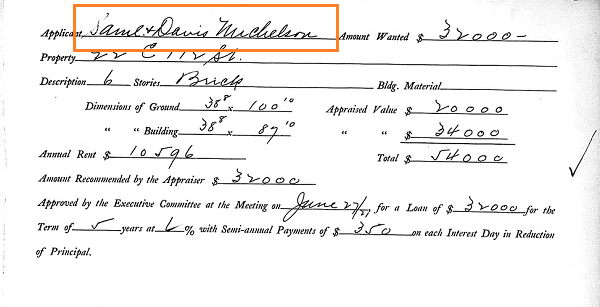 Applicant Saml & Davis Michelson Amount Wanted $ 32000-
Property 22 E 112 St.
Description 6 Stories Brick Bldg. Material
Dimensions of Ground 38⁸ x 100¹⁰ Appraised Value $ 20000
" " Building 38⁸ x 87¹⁰ " " $ 34000
Annual Rent $ 10596 Total $ 54000
Amount Recommended by the Appraiser $ 32000
Approved by the Executive Committee at the Meeting on June 27/27 for a Loan of $ 32000 for the
Term of 5 years at 6 % with Semi-annual Payments of $ 350 on each Interest Day in Reduction
of Principal.